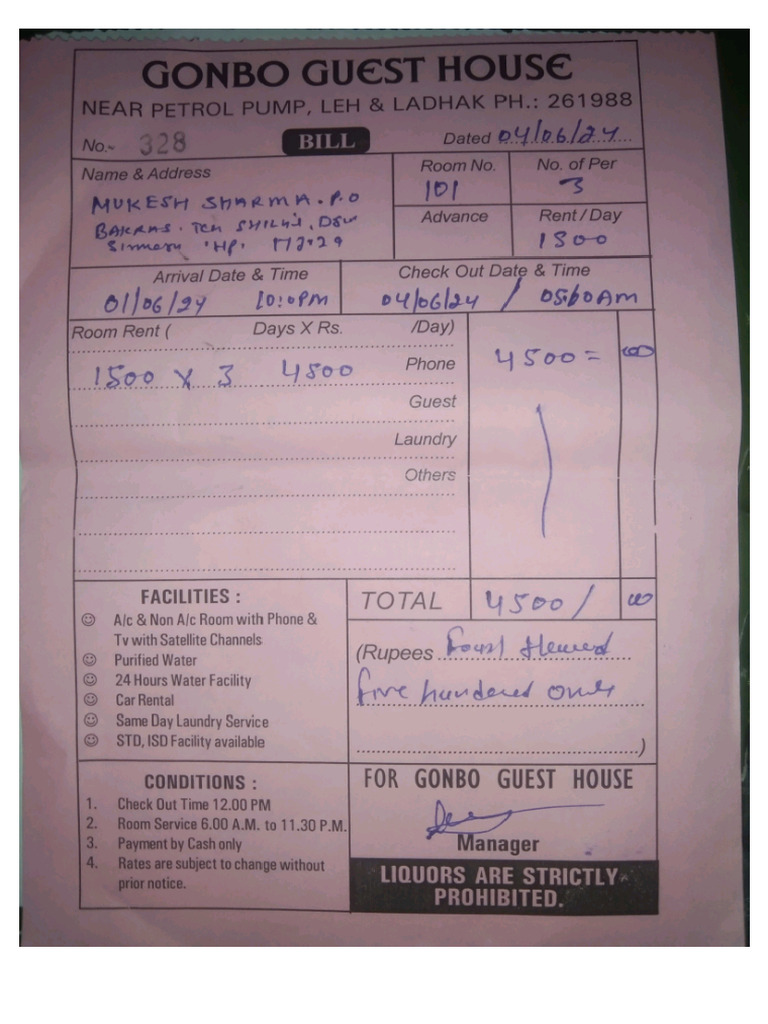 GONBO GUEST HOUSE
NEAR PETROL PUMP, LEH & LADHAK PH.: 261988
No.~ 328 BILL Dated 04/06/24
Name & Address Room No. No. of Per
MUKESH SHARMA. P.O 101 3
BAKRAS. Teh SHILLAI, Advance Rent / Day
HP. 1500
Arrival Date & Time Check Out Date & Time
01/06/24 10:0PM 04/06/24 / 05:00AM
Room Rent ( Days X Rs. /Day)
1500 X 3 4500 Phone 4500 = 00
Guest
Laundry
Others
FACILITIES : TOTAL 4500 / 00
A/c & Non A/c Room with Phone &
Tv with Satellite Channels
Purified Water
24 Hours Water Facility
Car Rental
Same Day Laundry Service
STD, ISD Facility available
(Rupees
five hundered only
)
CONDITIONS :
1. Check Out Time 12.00 PM
2. Room Service 6.00 A.M. to 11.30 P.M.
3. Payment by Cash only
4. Rates are subject to change without
prior notice.
FOR GONBO GUEST HOUSE
Manager
LIQUORS ARE STRICTLY
PROHIBITED.